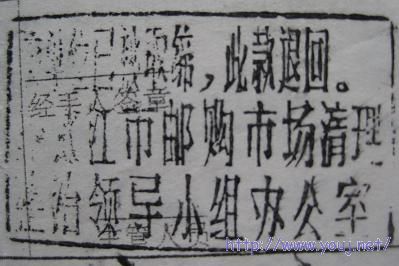 已被取缔，此款退回。
经手 签章
江市邮购市场清理
治领导小组办公室
管
http://www.youj.net/